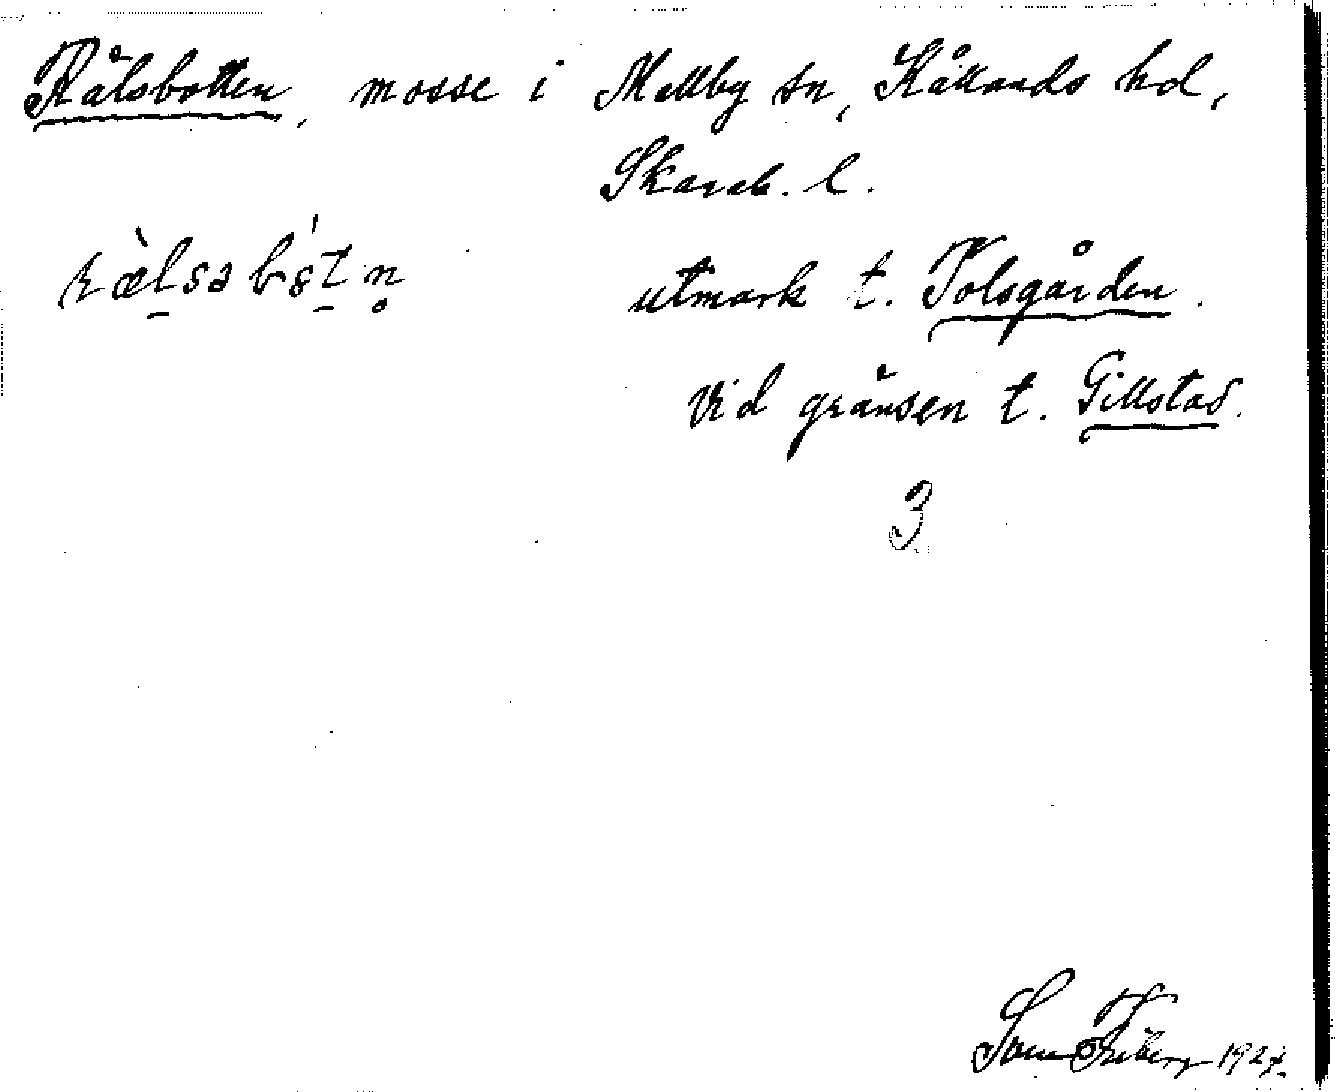 Rälsbotten, mosse i Mellby sn, Kållands hd,
Skarab. l.
rælsabotn utmark t. Tolsgården.
Vid gränsen t. Gillstad.
3
Sven Friberg 1927.